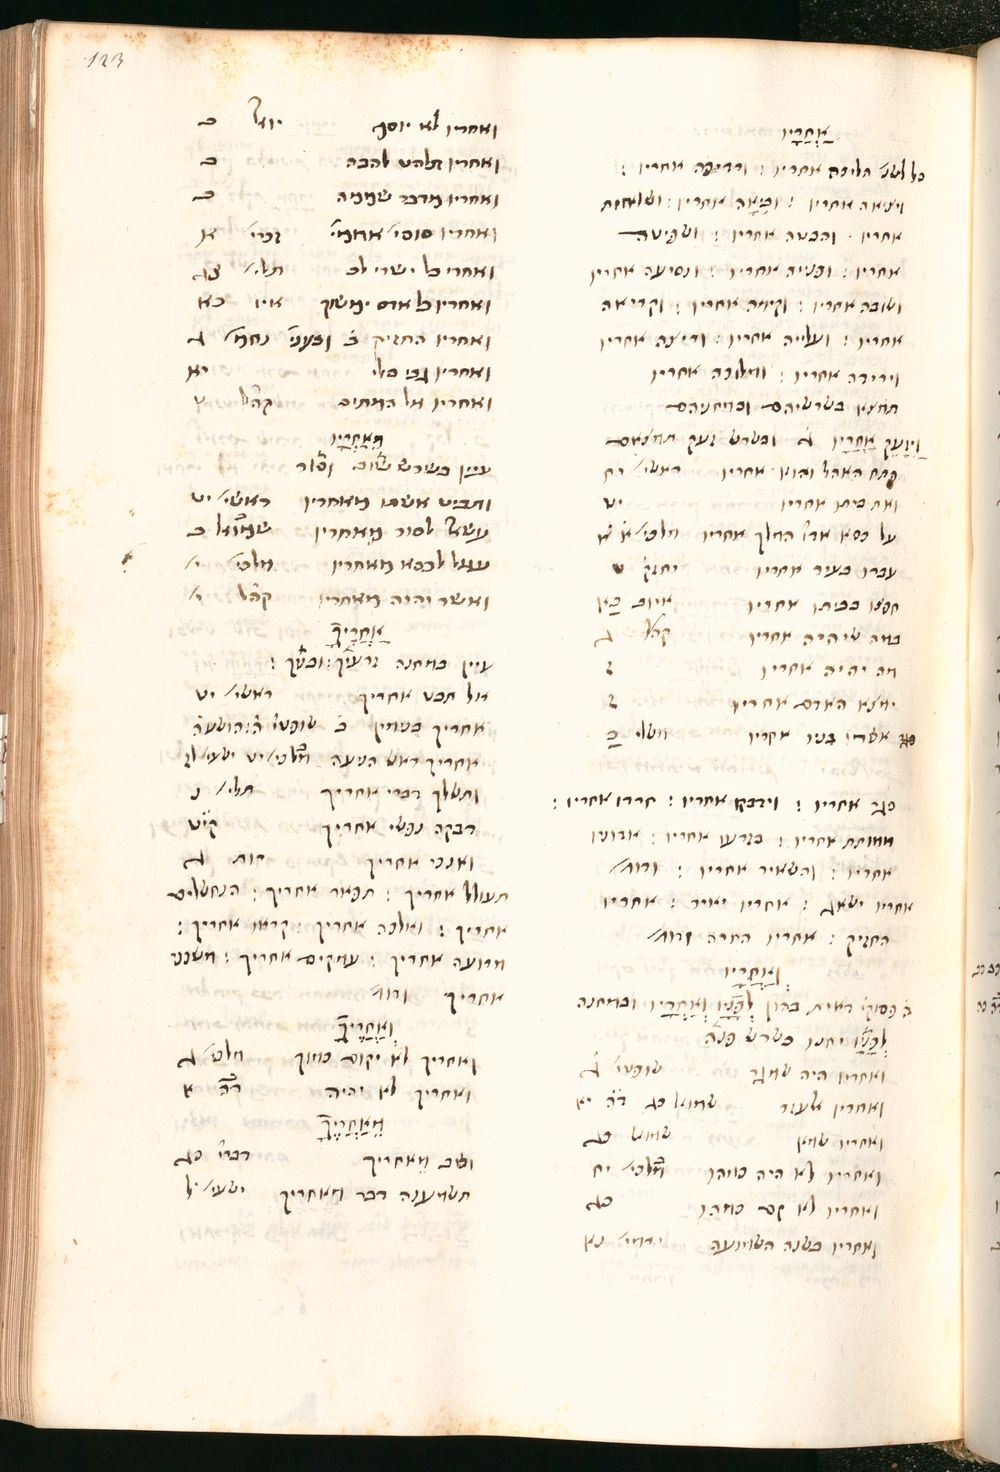 123
אַחֲרָיו
כל לשון הליכה אחריו : ורדיפה אחריו :
ויציאה אחריו : וביאה אחריו : ושליחות
אחריו : והבטה אחריו : ושפיטה
אחריו : ופנייה אחריו : ונסיעה אחריו
ושובה אחריו : וקימה אחריו : וקריאה
אחריו : ועלייה אחריו : וריצה אחריו
וירידה אחריו : ומלוכה אחריו
תמצא בשרשיהם ובמחניהם
וַיִזָּעֵק אַחֲרָיו ג ובשרש זעק תמצאם
פתח האהל והוא אחריו ראשי׳ יח
ואת ביתו אחריו יט
על כסא אדו׳ המלך אחריו מלכי׳ א א
עברו בעיר אחריו יחזק׳ ט
חפצו בביתו אחריו איוב כא
במה שיהיה אחריו קהל׳ ג
מה יהיה אחריו ז
ימצא האדם אחריו ז
אשרי בניו אחריו משלי כ
סגר אחריו : וידבקו אחריו : חרדו אחריו :
ממותת אחריו : בזרעו אחריו : אדונינו
אחריו : והשאיר אחריו : ודומ׳
אחריו ישאג : אחריו יאיר : אחריו
החזיק : אחריו החרה ודומ׳
וְאַחֲרָיו
לְפָנָיו וְאַחֲרָיו ובמחנה
לְפָנָיו יחנו בשרש פנה
ואחריו היה שמגר שופטי׳ ג
ואחריו אלעזר שמואל כג דה יא
ואחריו שמא שמוא׳ כג
ואחריו לא היה כמוהו מלכי׳ יח
ואחריו לא קם כמוהו כג
ואחריו בשנה השמועה ירמי׳ נא
ואחריו לא יוסף יואל ב
ואחריו תלהט להבה ב
ואחריו מדבר שממה ב
ואחריו סוסי׳ אדמי׳ זכרי׳ א
ואחריו כל ישרי לב תלי׳ צד
ואחריו כל אדם ימשוך איו׳ כא
ואחריו החזיק ב ובעניי׳ נחמי׳ ג
ואחריו גבי סלי יא
ואחריו אל המתים קהל׳ ט
מֵאַחֲרָיו
עיין בשרש שוב וסור
ותבט אשתו מאחריו ראשי׳ יט
עשאל לסור מאחריו שמואל ב
עגול לכסא מאחריו מלכי׳ י
ואשר יהיה מאחריו קהל׳ י
אַחֲרֶיךָ
עיין במחנה זרעך : ובניך :
אל תבט אחריך ראשי׳ יט
אחריך בנימין ב שופטי׳ ה : הושעה
אחריך ראש הניעה מלכי׳ יט ישעי׳ לז
ותשלך דברי אחריך תלי׳ נ
דבקה נפשי אחריך
ואנכי אחריך רות ד
תעולל אחריך : תפאר אחריך : הנחשלים
אחריך : ואלכה אחריך : קראו אחריך :
מרועה אחריך : עמקים אחריך : משכני
אחריך ודומ׳
וְאַחֲרֶיךָ
ואחריך לא יקום כמוך מלכי׳ ג
ואחריך לא יהיה דה א
מֵאַחֲרֶיךָ
ושב מאחריך דברי׳ כג
תשמענה דבר מאחריך ישעי׳ ל